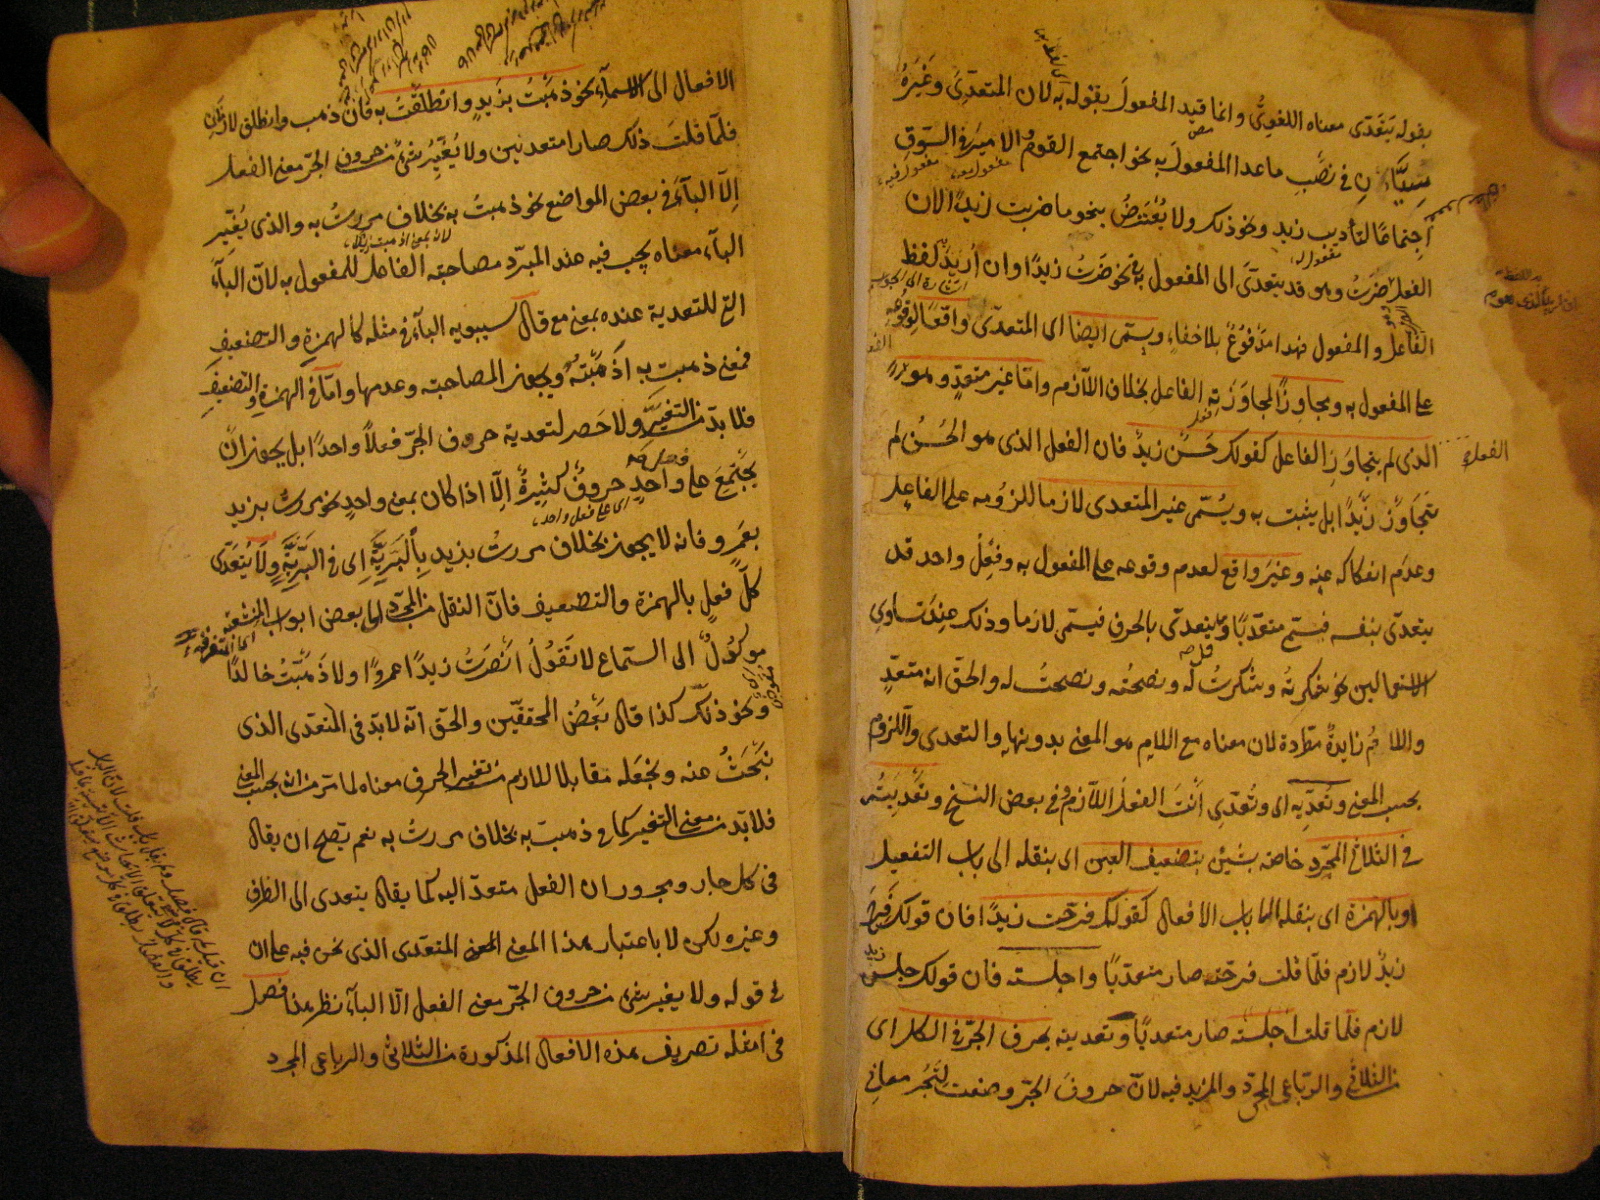 بقوله يتعدى معناه اللغوي وانما قيد المفعول بقوله به لان المتعدي وغيره
سيان في نصب ما عدا المفعول به نحو اجتمع القوم والامير في السوق
اجتماعا لتأديب زيد ونحو ذلك ولا يعترض بنحو ما ضربت زيدا لان
الفعل ضربت وهو قد يتعدى الى المفعول به في نحو ضربت زيدا وان أريد لفظ
الفاعل والمفعول فهذا مدفوع بلا خفاء ويسمى ايضا اى المتعدى واقعا لوقوعه
على المفعول به ومجاوزا لمجاوزته الفاعل بخلاف اللازم واما غير متعد وهو
الذى لم يتجاوز الفاعل كقولك حسن زيد فان الفعل الذى هو الحسن لم
يتجاوز زيدا بل يثبت به ويسمى غير المتعدى لازما للزومه على الفاعل
وعدم انفكاكه عنه وغير واقع لعدم وقوعه على المفعول به وفعل واحد قد
يتعدى بنفسه فيسمى متعديا وقد يتعدى بالحرف فيسمى لازما وذلك عند تساوى
الاستعمالين نحو شكرته وشكرت له ونصحته ونصحت له والحق انه متعد
واللام زايدة مطردة لان معناه مع اللام هو المعنى بدونها والتعدى واللزوم
بحسب المعنى وتعديه اى وتعدى أنت الفعل اللازم وفي بعض النسخ وتعديته
في الثلاثي المجرد خاصة بشيئين بتضعيف العين اى بنقله الى باب التفعيل
او بالهمزة اى بنقله الى باب الافعال كقولك فرحت زيدا فان قولك فرح
زيد لازم فلما قلت فرحته صار متعديا واجلسته فان قولك جلس زيد
لازم فلما قلت اجلسته صار متعديا وتعديته بحرف الجر في الكل اى
من الثلاثي والرباعى المجرد والمزيد فيه لان حروف الجر وضعت لتجر معاني
الافعال الى الاسماء نحو ذهبت بزيد وانطلقت به فان ذهب وانطلق لازمان
فلما قلت ذلك صارا متعديين ولا يغير شئ من حروف الجر معنى الفعل
إلا الباء في بعض المواضع نحو ذهبت به بخلاف مررت به والذى يغير
لان بمعنى اذهبت زيدا
الباء معناه يجب فيه عند المبرد مصاحبة الفاعل للمفعول به لان الباء
التى للتعدية عنده بمعنى مع قال سيبويه الباء في مثله كالهمزة والتضعيف
فمعنى ذهبت به اذهبته ويجوز المصاحبة وعدمها واما في الهمزة والتضعيف
فلا بد من التغيير ولا حصر لتعدية حروف الجر فعلا واحدا بل يجوز ان
يجتمع على واحد حروف كثيرة إلا اذا كان بمعنى واحد نحو مررت بزيد
اى على فعل واحد
بعمرو فانه لا يجوز بخلاف مررت بزيد بالبرية اى في البرية ولا يتعدى
كل فعل بالهمزة والتضعيف فان النقل من المجرد الى بعض ابواب المنشعبة
موكول الى السماع لا تقول انصرت زيدا عمروا ولا ذهبت خالدا
ونحو ذلك كذا قال بعض المحققين والحق انه لا بد في المتعدى الذى
نبحث عنه ونجعله مقابلا للازم من تغيير الحرف معناه لما مر من انه بحسب المعنى
فلا بد من معنى التغيير كما في ذهبت به بخلاف مررت به نعم يصح ان يقال
في كل جار ومجرور ان الفعل متعد اليه كما يقال يتعدى الى الظرف
وغيره لكن لا باعتبار هذا المعنى المتعدى الذى نحن فيه على ان
في قوله ولا يغير شئ من حروف الجر معنى الفعل الا الباء نظر هذا فصل
في امثلة تصريف هذه الافعال المذكورة من الثلاثي والرباعى المجرد